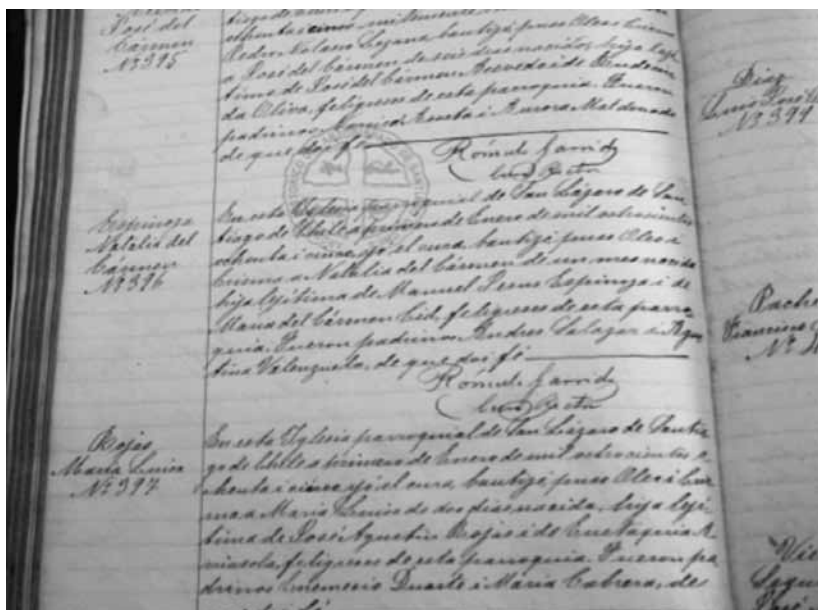 José del
Cármen
Nº 395
ochenta i cinco
Pedro Nolasco Lezana, bautizó puso Oleo i Crisma
a José del Cármen de seis dias nacido, hijo lejí-
timo de José del Cármen Acevedo i de
da Oliva, feligreses de esta parroquia. Fueron
padrinos Acosta i Aurora Maldonado
de que doi fé
Rómulo Garrido
Cura Rector
Espinoza
Natalia del
Cármen
Nº 396
En esta Iglesia parroquial de San Lázaro de San-
tiago de Chile a primero de Enero de mil ochocientos
ochenta i cinco, yó el cura, bautizó puso Oleo i
Crisma a Natalia del Cármen de un mes nacida
hija lejítima de Manuel Jesus Espinoza i de
Maria del Cármen Cid, feligreses de esta parro-
quia. Fueron padrinos Andres Salazar i Agus-
tina Valenzuela, de que doi fé
Rómulo Garrido
Cura Rector
Rojas
Maria Luisa
Nº 397
En esta Iglesia parroquial de San Lázaro de Santia-
go de Chile a primero de Enero de mil ochocientos o-
chenta i cinco, yó el cura, bautizó puso Oleo i Cris-
ma a Maria Luisa de dos dias nacida, hija lejí-
tima de José Agustin Rojas i de Eustaquia
feligreses de esta parroquia. Fueron pa-
drinos Duarte i Maria Cabrera, de
Diaz
Nº 399
Francisco
Nº